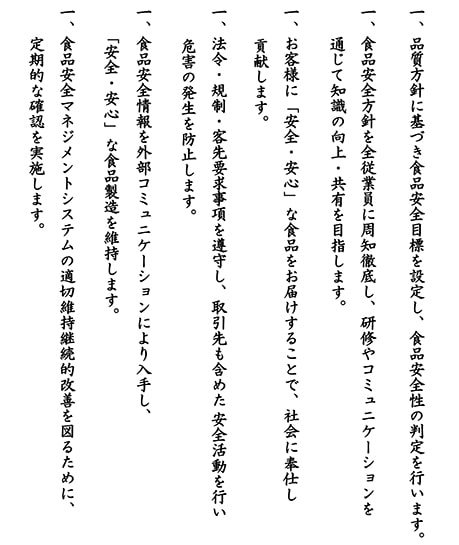 一、品質方針に基づき食品安全目標を設定し、食品安全性の判定を行います。
一、食品安全方針を全従業員に周知徹底し、研修やコミュニケーションを
通じて知識の向上・共有を目指します。
一、お客様に「安全・安心」な食品をお届けすることで、社会に奉仕し
貢献します。
一、法令・規制・客先要求事項を遵守し、取引先も含めた安全活動を行い
危害の発生を防止します。
一、食品安全情報を外部コミュニケーションにより入手し、
「安全・安心」な食品製造を維持します。
一、食品安全マネジメントシステムの適切維持継続的改善を図るために、
定期的な確認を実施します。